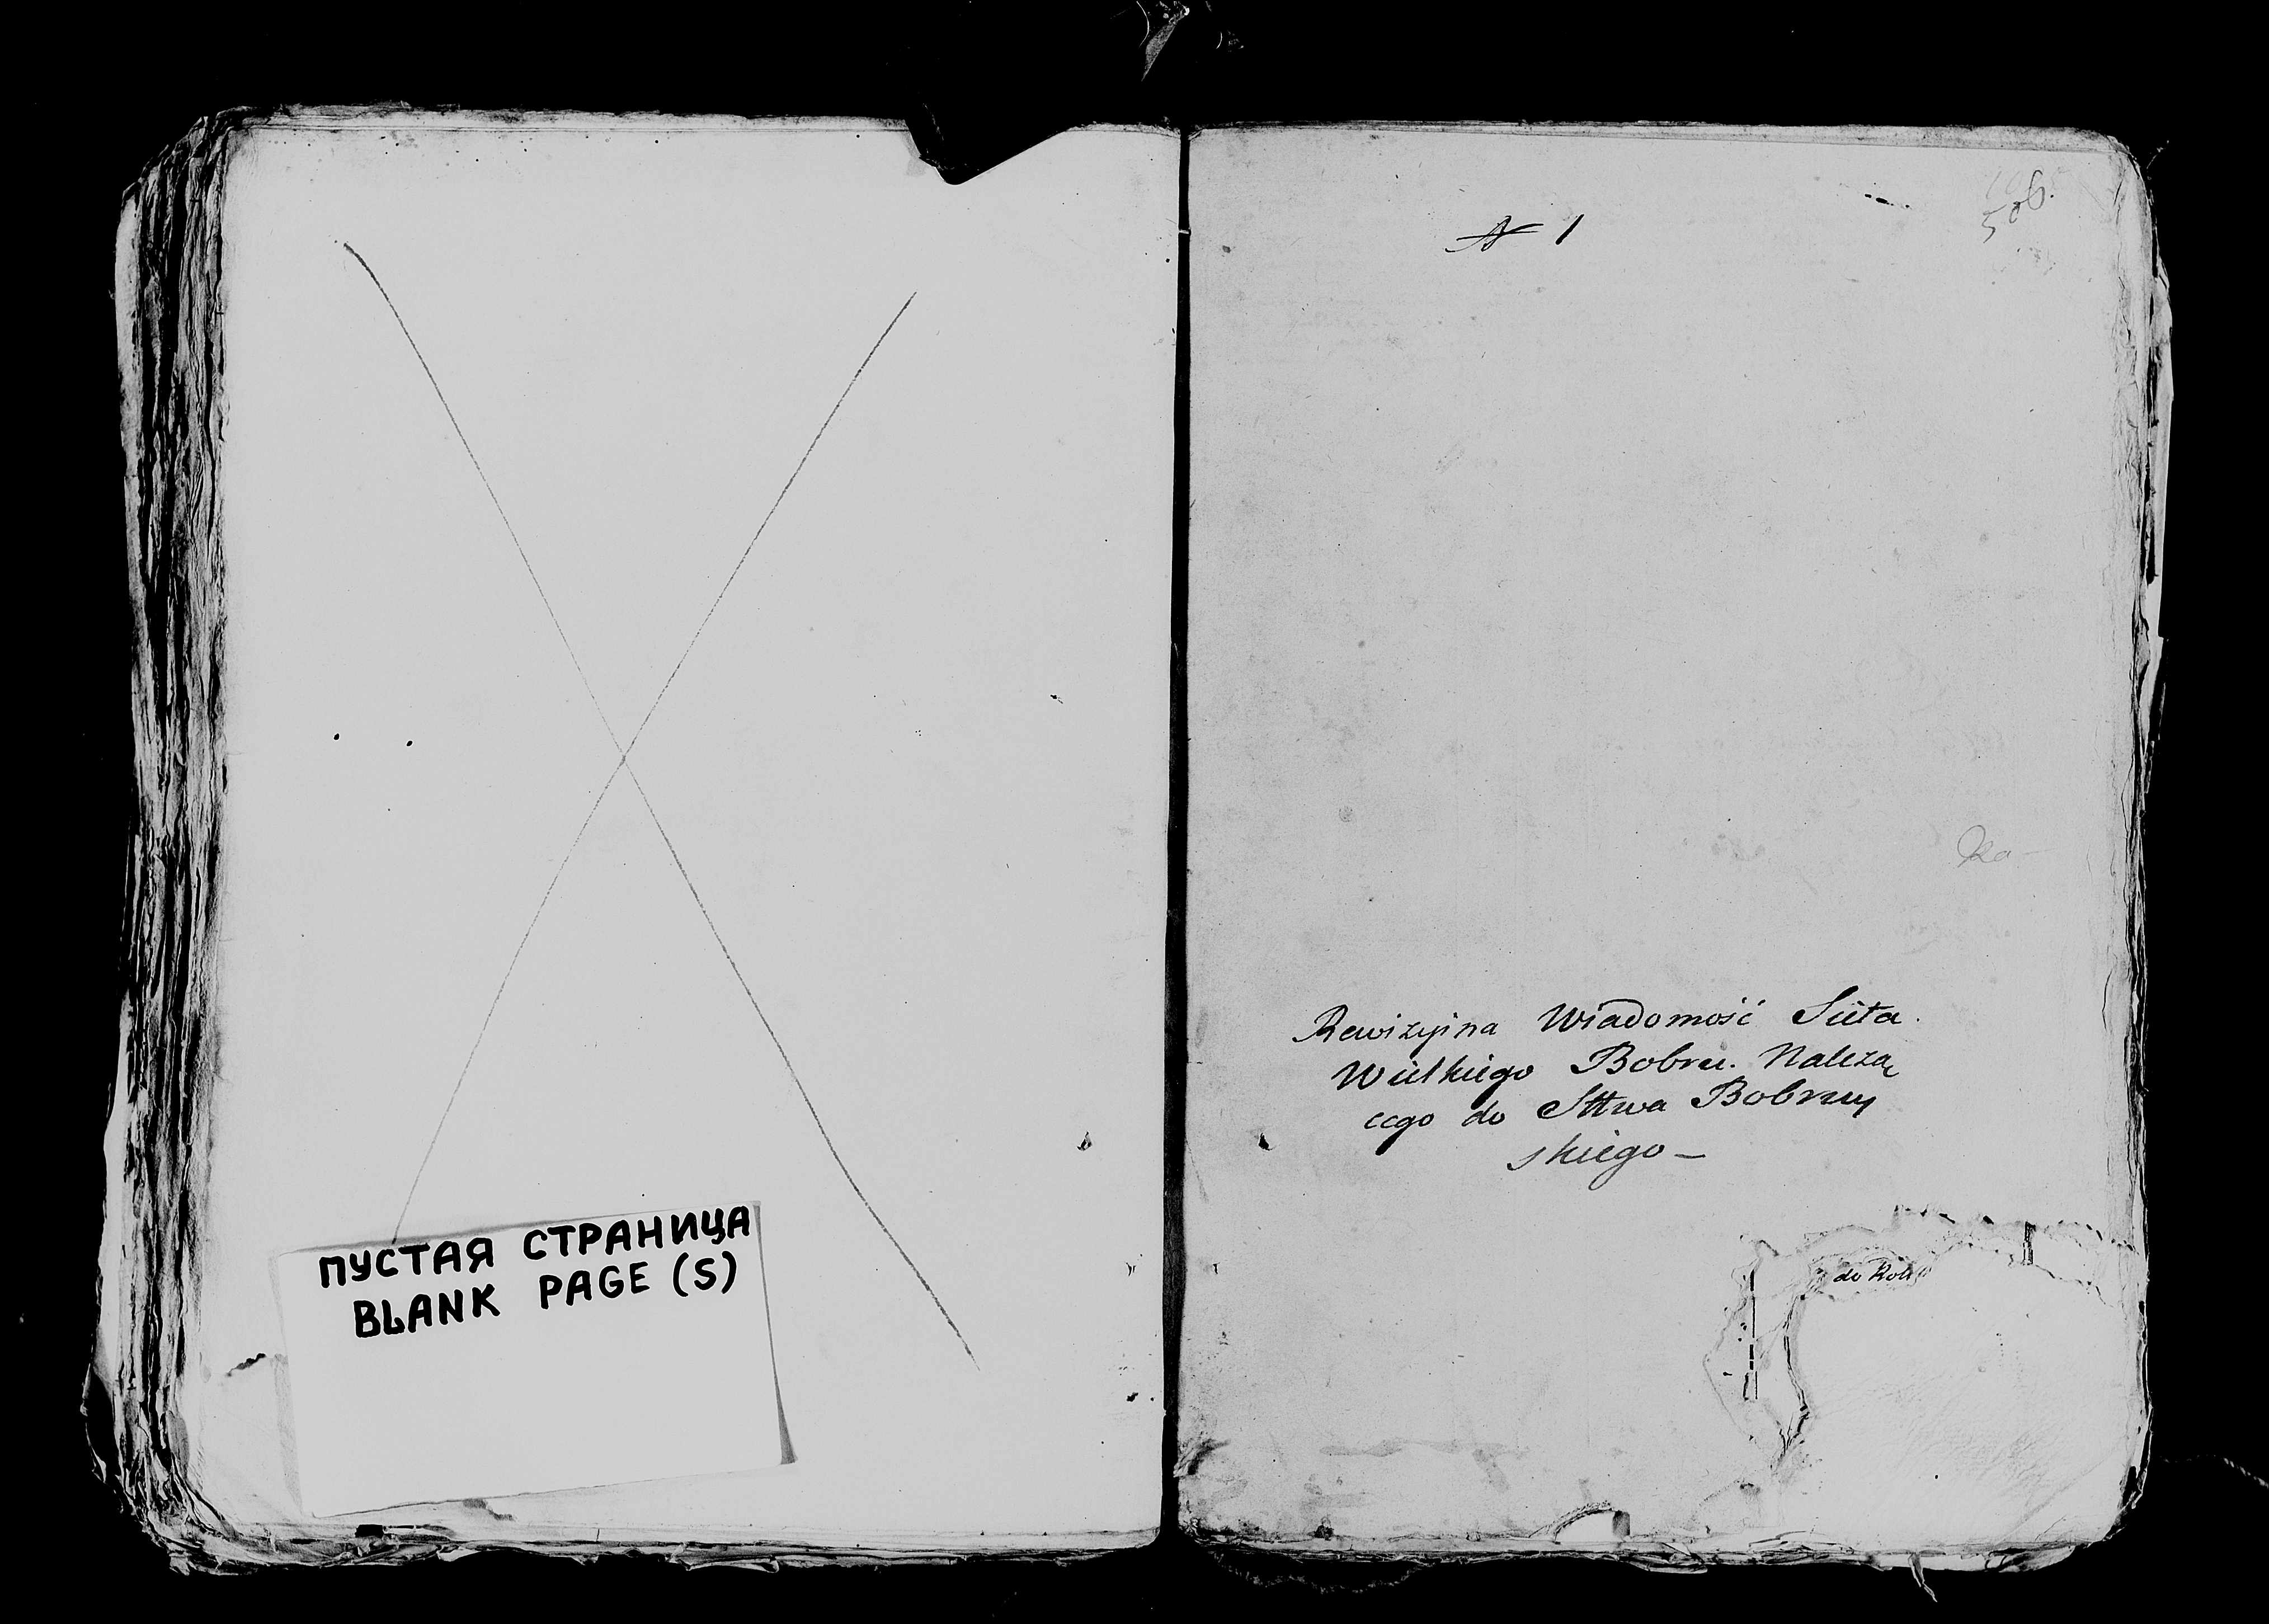 ПУСТАЯ СТРАНИЦА
BLANK PAGE (S)
N 1
506.
Rewizyjna Wiadomość Sieła
Wielkiego Bobru. Należą
cego do Sttwa Bobruy
skiego –
do